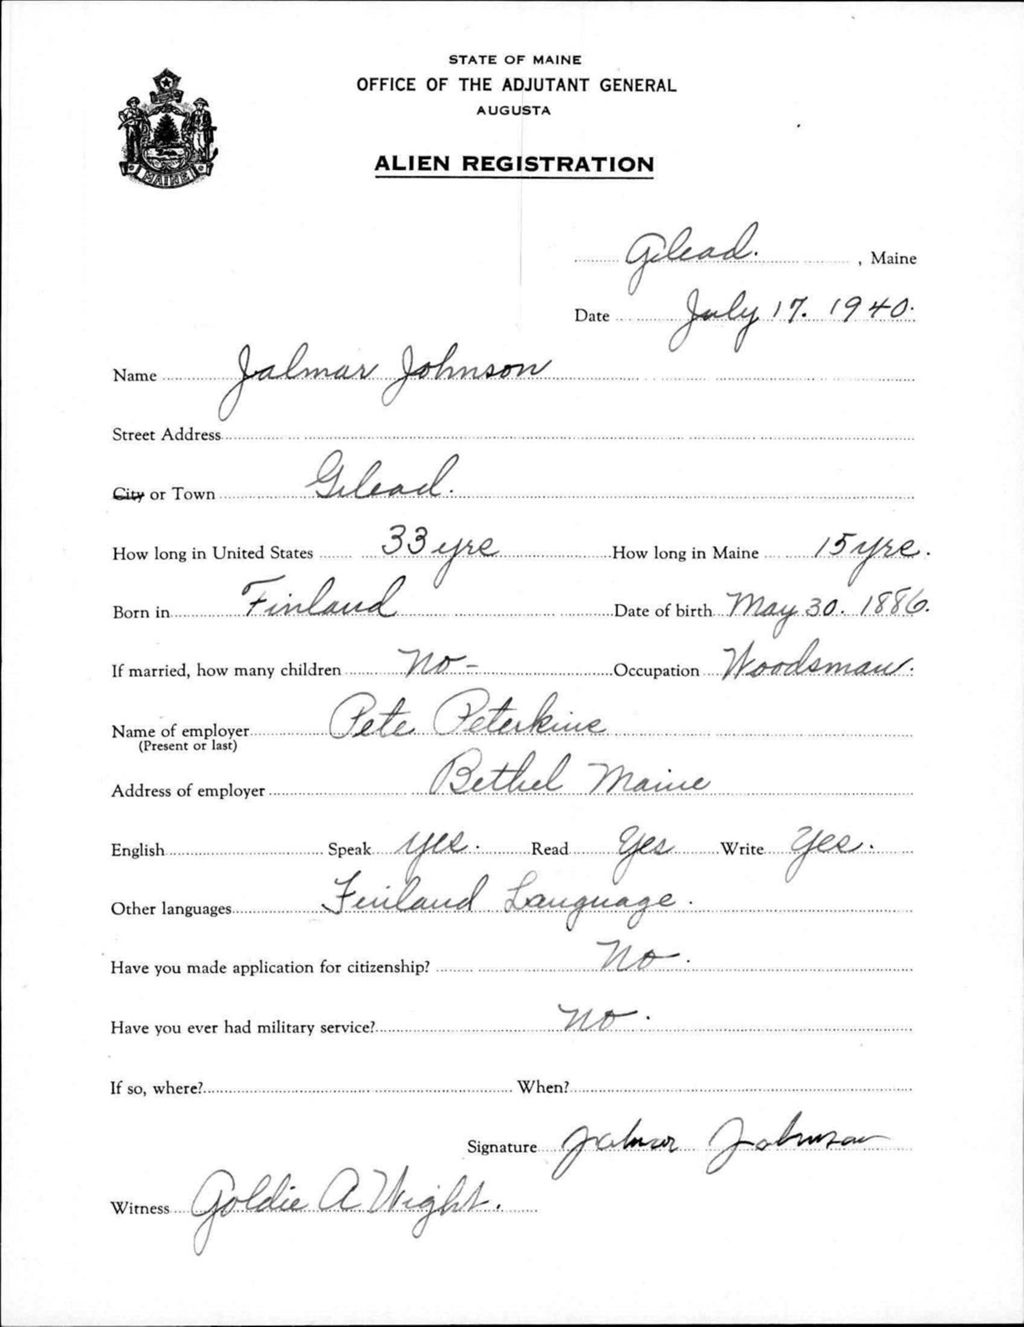 STATE OF MAINE
OFFICE OF THE ADJUTANT GENERAL
AUGUSTA
ALIEN REGISTRATION
MAINE
Gilead. , Maine
Date July 17. 1940.
Name Jalmar Johnson
Street Address
City or Town Gilead.
How long in United States 33 yrs How long in Maine 15 yrs.
Born in Finland Date of birth May 30. 1886.
If married, how many children No - Occupation Woodsman.
Name of employer Pete Peterkins
(Present or last)
Address of employer Bethel Maine
English Speak yes. Read Yes Write Yes.
Other languages Finland Language.
Have you made application for citizenship? No.
Have you ever had military service? No.
If so, where? When?
Signature Jalmar Johnson
Witness Goldie A Wight.